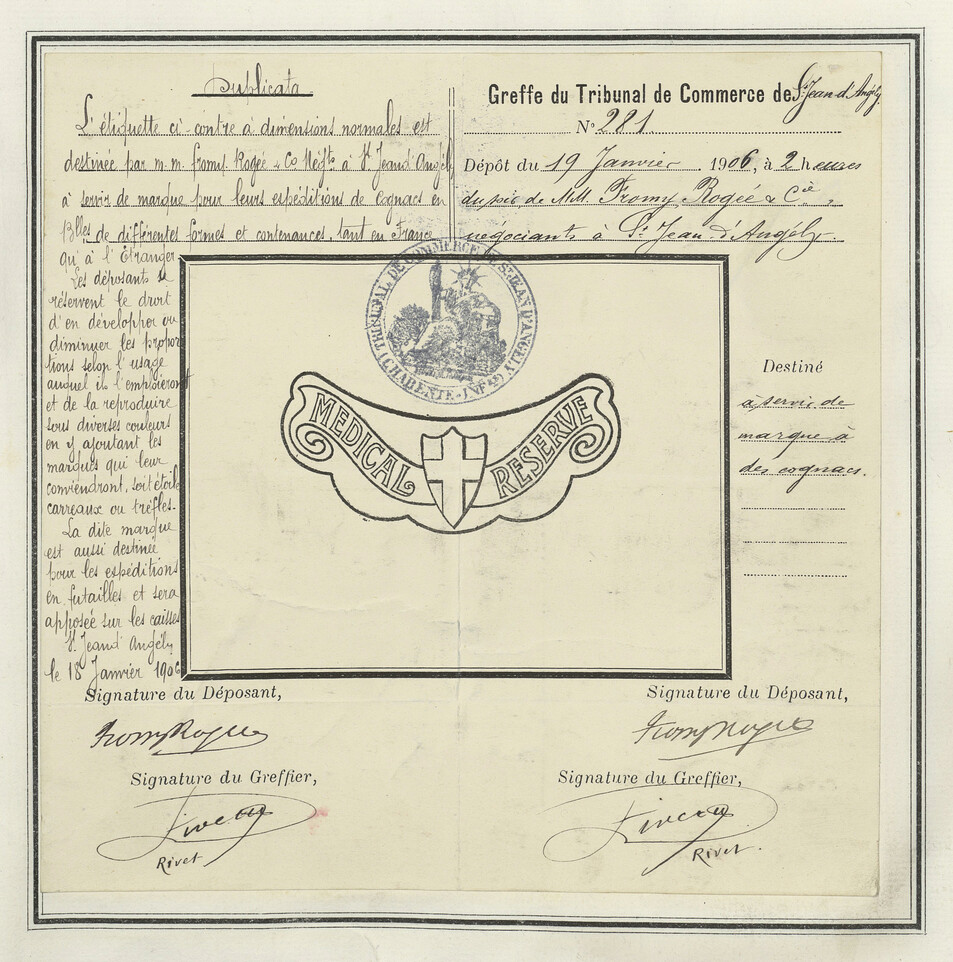 Duplicata
L'étiquette ci-contre à dimensions normales est
destinée par m.m. Fromy Rogée & Co Négts à St Jean d'Angély
à servir de marque pour leurs expéditions de cognacs en
Blles de différentes formes et contenances, tant en France
qu'à l'Étranger
Les déposants se
réservent le droit
d'en développer ou
diminuer les propor
tions selon l'usage
auquel ils l'emploieront
et de la reproduire
sous diverses couleurs
en y ajoutant les
marques qui leur
conviendront, soit étoiles
carreaux ou trèfles.
La dite marque
est aussi destinée
pour les expéditions
en futailles et sera
apposée sur les caisses
St Jean d'Angély
le 18 Janvier 1906
Greffe du Tribunal de Commerce de St Jean d'Angély
No 281
Dépôt du 19 Janvier 1906, à 2 heures
du soir, de MM. Fromy Rogée & Cie,
négociants à St Jean-d'Angély.
TRIBUNAL DE COMMERCE DE ST JEAN D'ANGELY
(CHARENTE-INFRE)
MEDICAL RESERVE
Destiné
à servir de
marque à
des cognacs.
Signature du Déposant,
Signature du Déposant,
Fromy Rogée
Fromy Rogée
Signature du Greffier,
Signature du Greffier,
Rivet
Rivet.